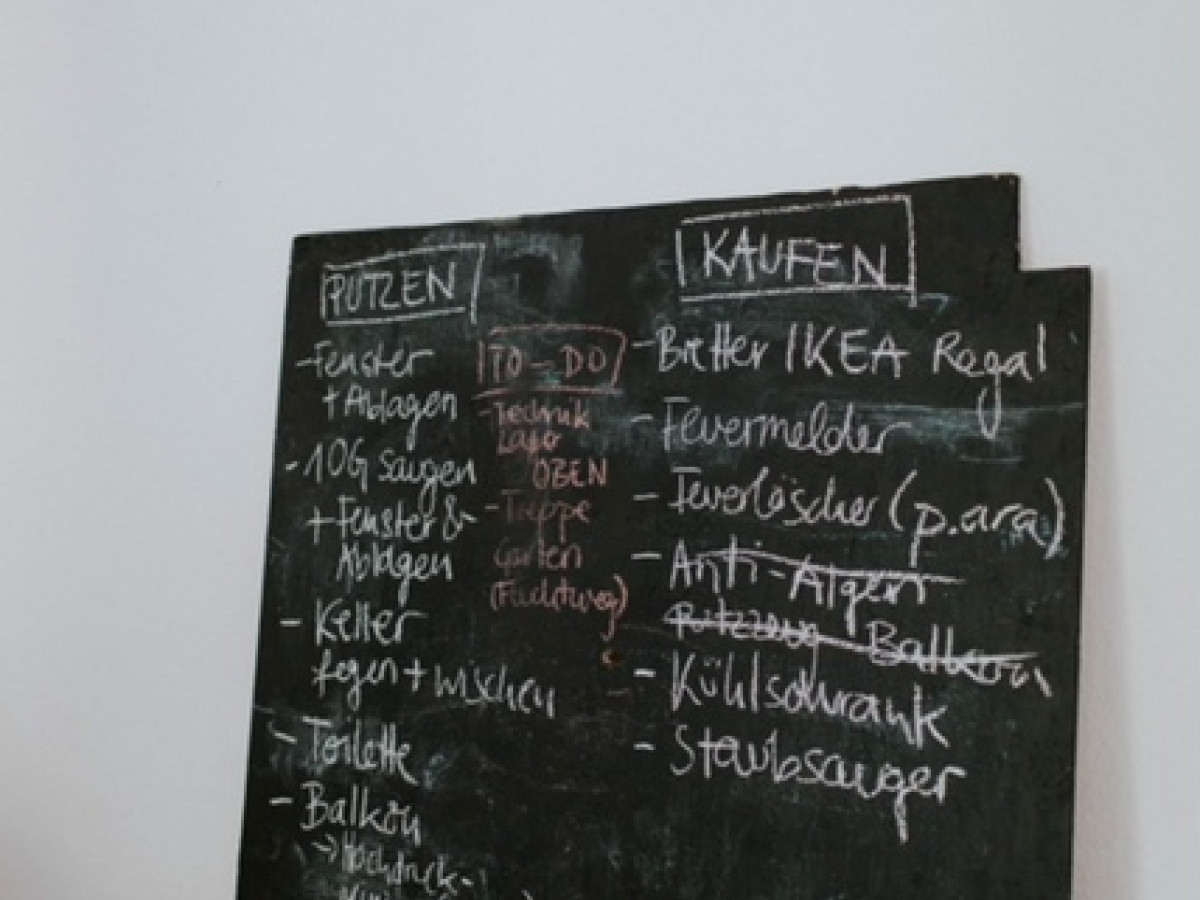 PUTZEN
-Fenster
+ Ablagen
- 10G saugen
+ Fenster &
Ablagen
- Keller
fegen + wischen
- Toilette
- Balkon
→ Hochdruck-
TO-DO
- Technik
OBEN
- Treppe
Garten
(Fluchtweg)
KAUFEN
- Bretter IKEA Regal
- Feuermelder
- Feuerlöscher (p.ara)
- Anti-Algen
Balkon
- Kühlschrank
- Staubsauger